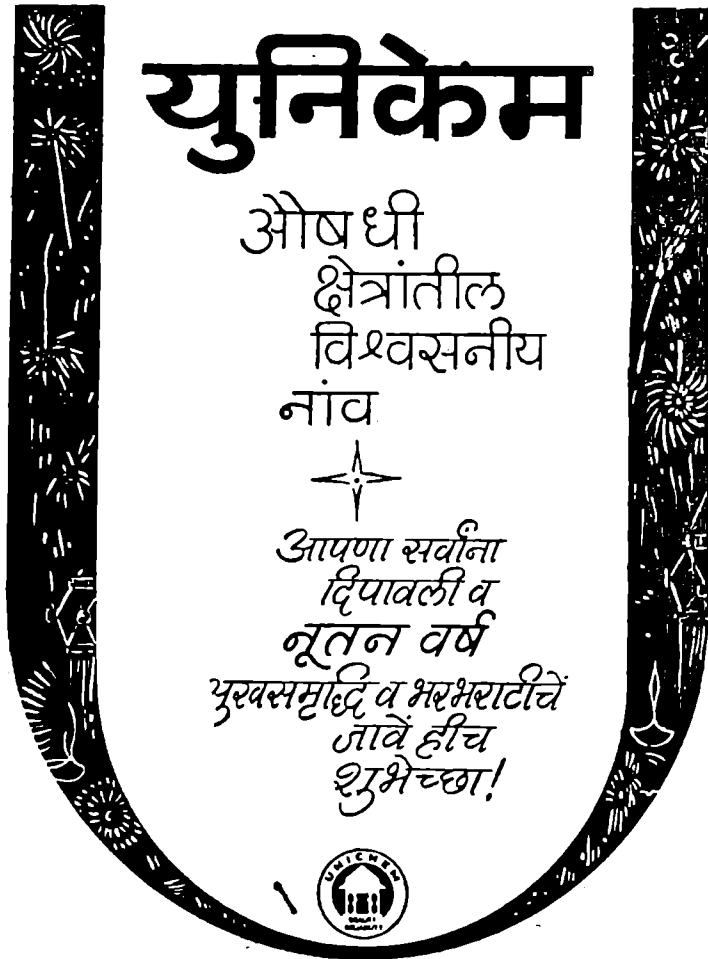 युनिकेम
औषधी
क्षेत्रांतील
विश्वसनीय
नांव
आपणा सर्वांना
दिपावली व
नूतन वर्ष
सुखसमृद्धि व भरभराटीचें
जावें हीच
शुभेच्छा!
UNICHEM